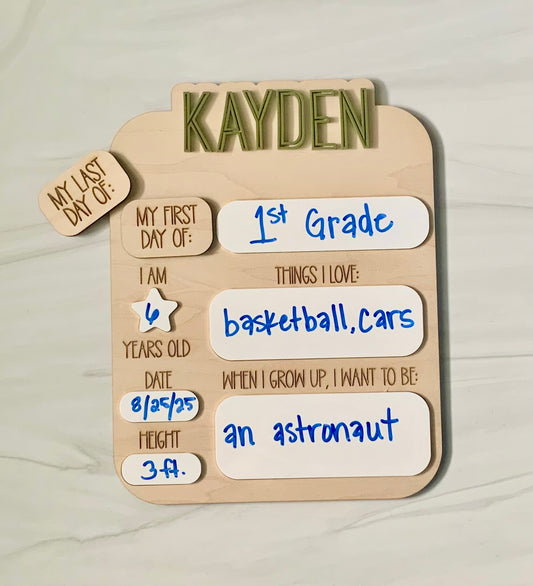 KAYDEN
MY LAST
DAY OF:
MY FIRST
DAY OF:
1st Grade
I AM
6
YEARS OLD
THINGS I LOVE:
basketball, cars
DATE
8/25/25
WHEN I GROW UP, I WANT TO BE:
an astronaut
HEIGHT
3ft.